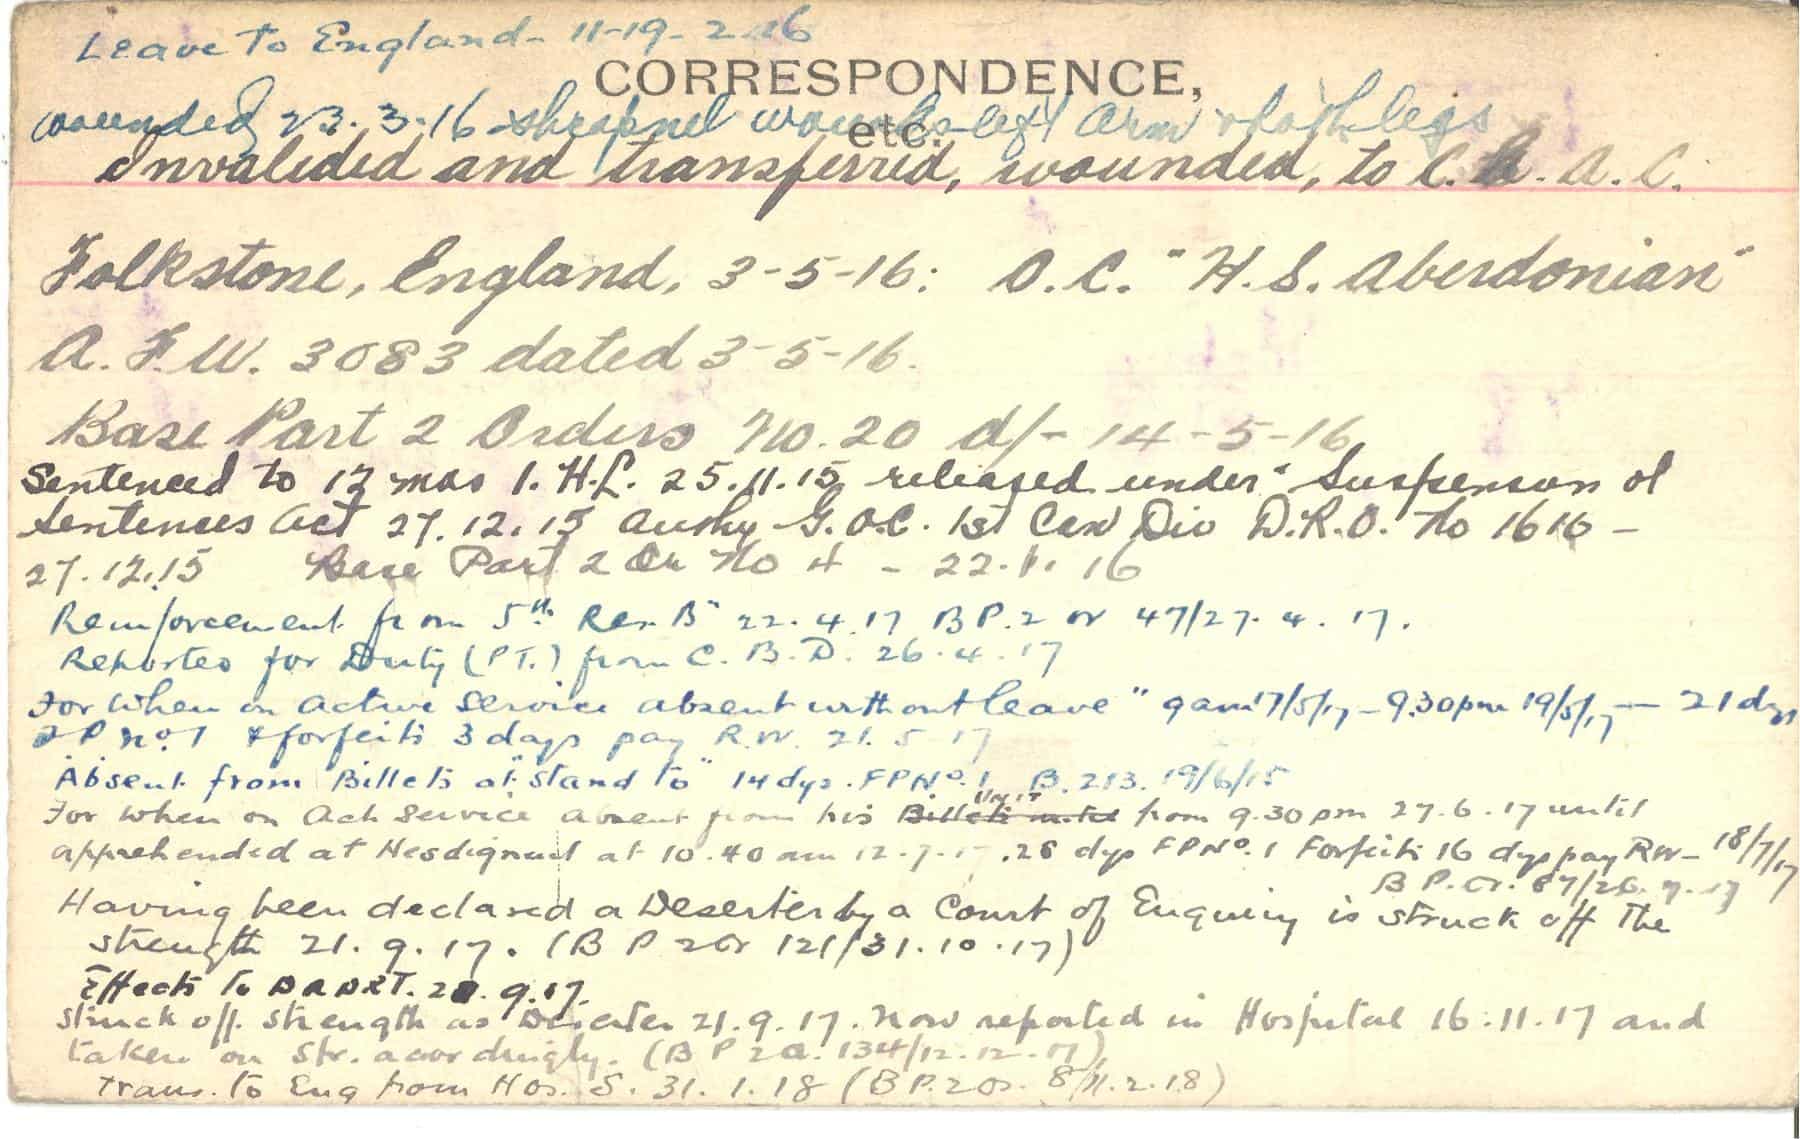 Leave to England - 11-19-2-16
CORRESPONDENCE,
etc.
wounded 23.3.16 shrapnel wounds left arm & both legs
Invalided and transferred, wounded, to C. A. C.
Folkstone, England, 3-5-16: O.C. "H.S. Aberdonian"
A.F.W. 3083 dated 3-5-16.
Base Part 2 Orders No. 20 d/- 14-5-16
Sentenced to 12 mos I.H.L. 25.11.15 released under "Suspension of
Sentences Act 27.12.15 authy G.O.C. 1st Can Div D.R.O. No 1616 -
27.12.15 Base Part 2 Or No 4 - 22.1.16
Reinforcement from 5th Res. Bn 22.4.17 B P.2 or 47/27.4.17.
Reported for Duty (PT.) from C.B.D. 26.4.17
For When on Active Service absent without leave" 9am 17/5/17 - 9.30pm 19/5/17 - 21 dys
FP No 1 & forfeits 3 days pay R.W. 21.5.17
Absent from Billets at "Stand to" 14 dys. FP No. 1 B.213. 19/6/15
For When on Act Service absent from his Billets until unit from 9.30pm 27.6.17 until
apprehended at Hesdigneul at 10.40 am 12.7.17. 28 dys FP No. 1 Forfeits 16 dys pay RW- 18/7/17
B P. Or. 87/26.7.17
Having been declared a Deserter by a Court of Enquiry is struck off the
strength 21.9.17. (B P 2 Or 121/31.10.17)
Effects to DADRT. 9.17.
Struck off strength as Deserter 21.9.17. Now reported in Hospital 16.11.17 and
taken on Str. accordingly. (B P 2 O. 134/12.12.17)
Trans. to Eng from Hos. S. 31.1.18 (B P. 2 Or. 8/11.2.18)